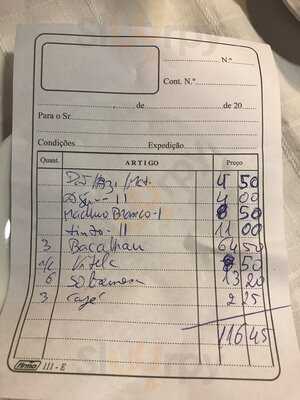 N.º
Cont. N.º
, de de 20
Para o Sr
Condições Expedição
Quant. ARTIGO Preço
4 50
4 00
Branco-1 8 50
tinto-11 11 00
3 Bacalhau 64 50
Vitela 8 50
6 Sobremesa 13 20
3 café 2 25
116 45
firmo III - E